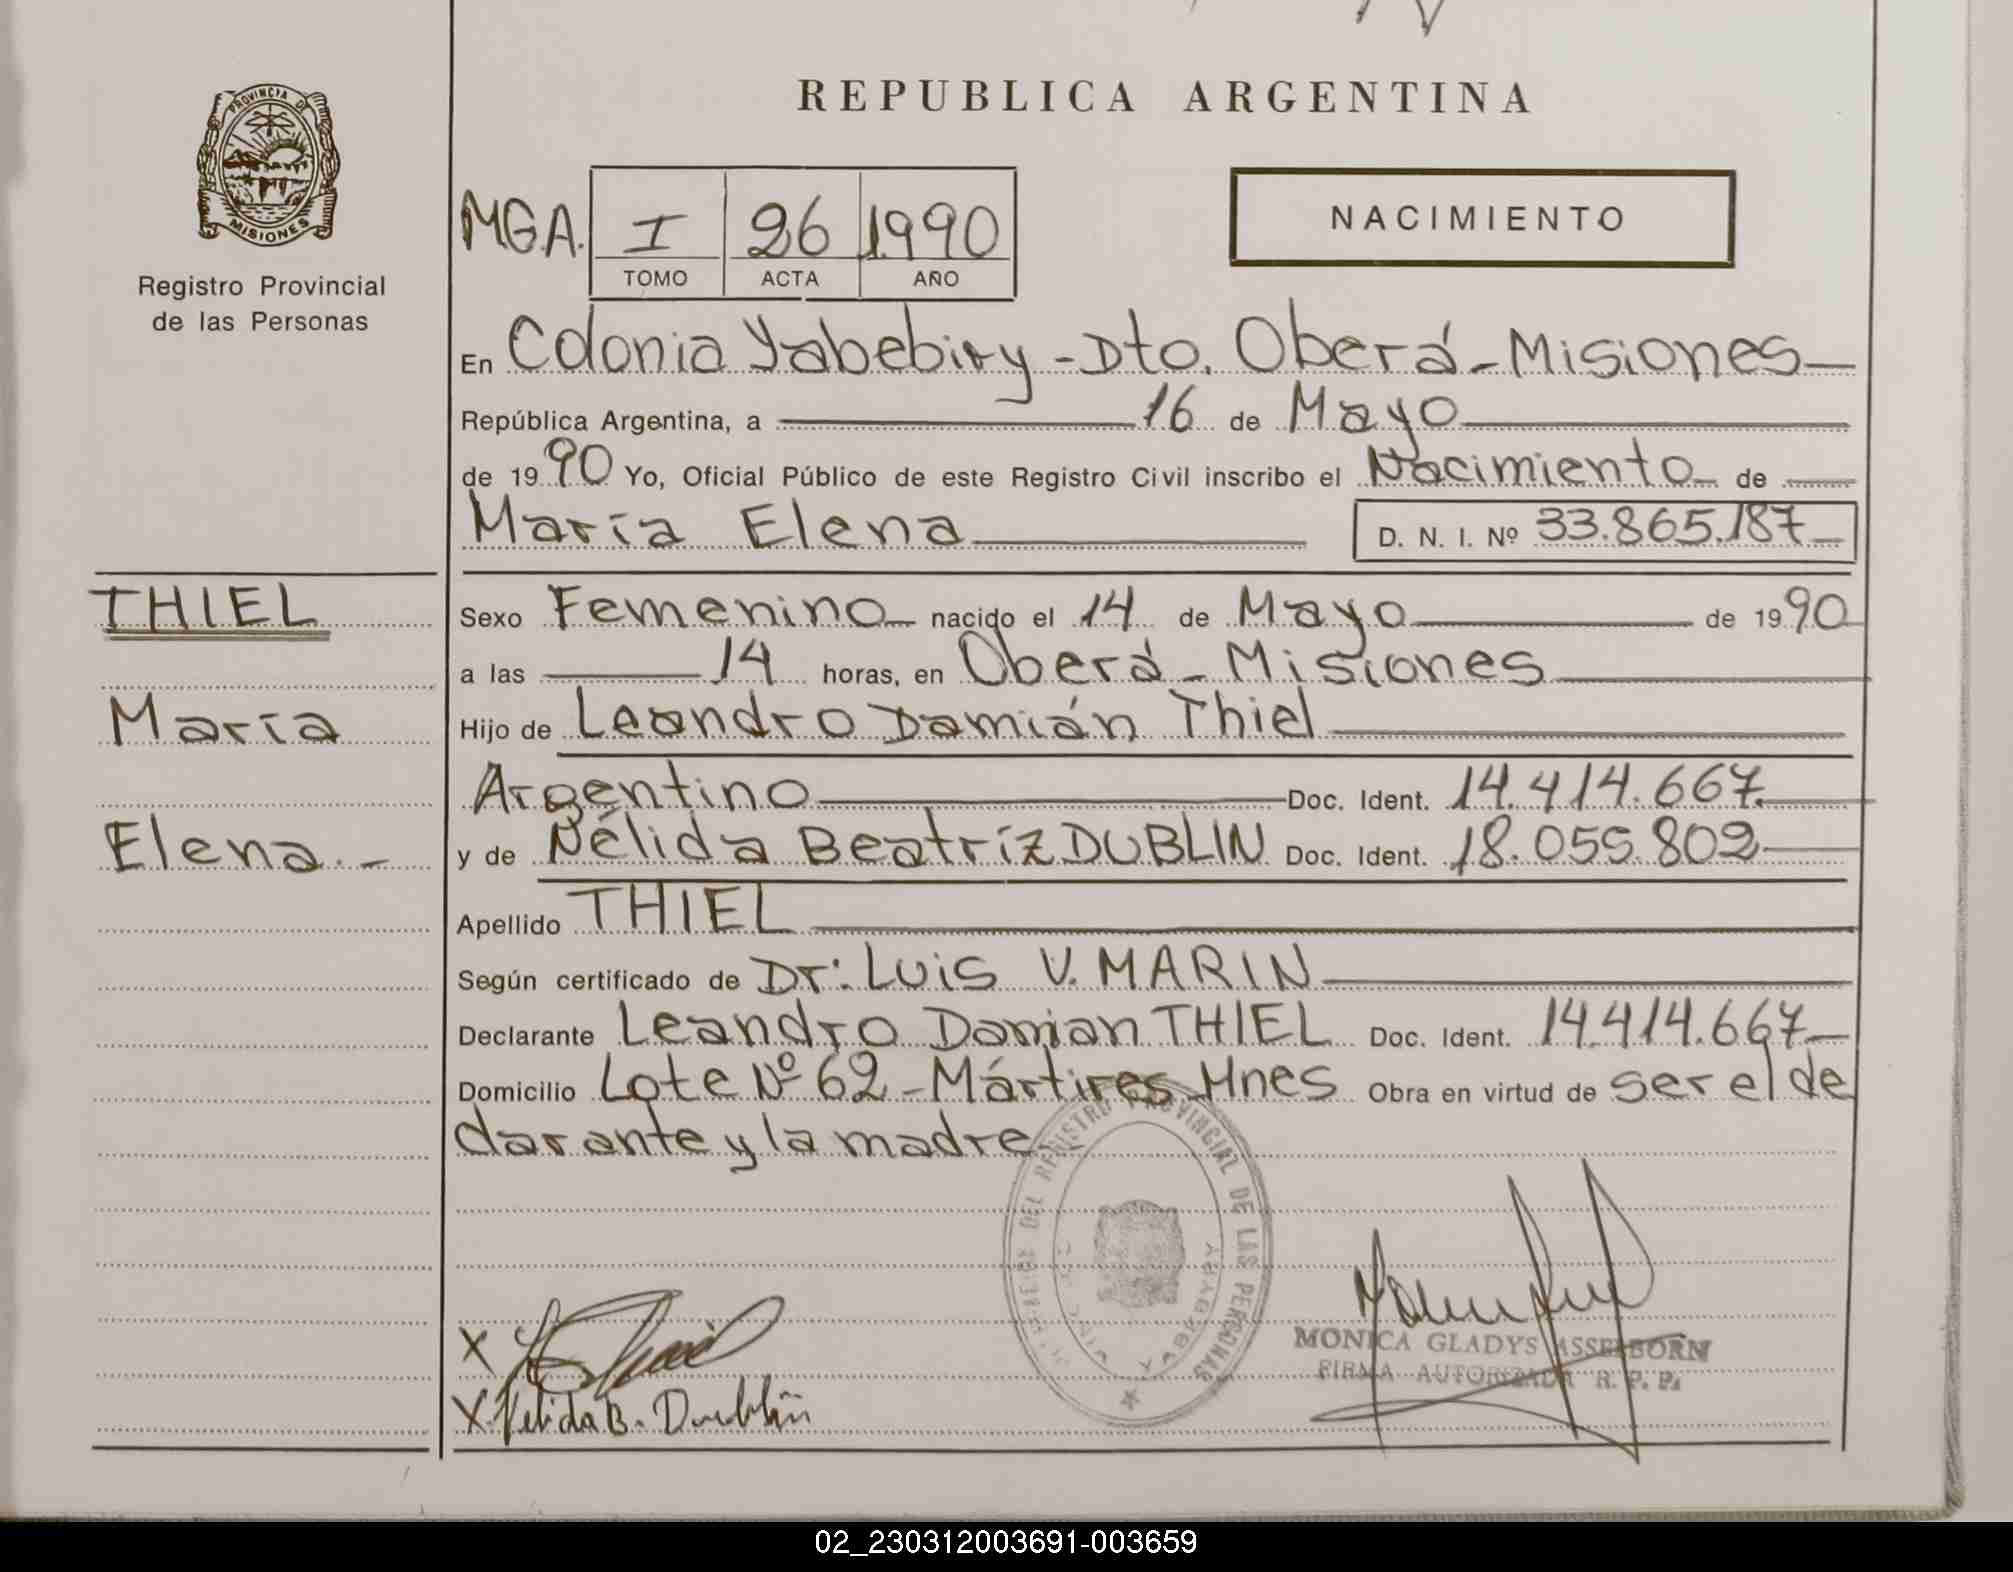 REPUBLICA ARGENTINA
PROVINCIA DE
MISIONES
Registro Provincial
de las Personas
NACIMIENTO
M.G.A. I 26 1990
TOMO ACTA AÑO
En Colonia Yabebiry - Dto. Oberá - Misiones
República Argentina, a 16 de Mayo
de 1990 Yo, Oficial Público de este Registro Civil inscribo el Nacimiento de
María Elena D. N. I. Nº 33.865.187
THIEL
María
Elena.-
Sexo Femenino nacido el 14 de Mayo de 1990
a las 14 horas, en Oberá - Misiones
Hijo de Leandro Damián Thiel
Argentino Doc. Ident. 14.414.667
y de Nélida Beatríz DUBLIN Doc. Ident. 18.055.802
Apellido THIEL
Según certificado de Dr: Luis V. MARIN
Declarante Leandro Damian THIEL Doc. Ident. 14.414.667
Domicilio Lote Nº 62 - Mártires Mnes Obra en virtud de ser el de
clarante y la madre
DEL REGISTRO PROVINCIAL DE LAS PERSONAS
YABEBIRY
MONICA GLADYS ASSELBORN
FIRMA AUTORIZADA R. P. P.
X
X Nelida B. Dublin
02_230312003691-003659